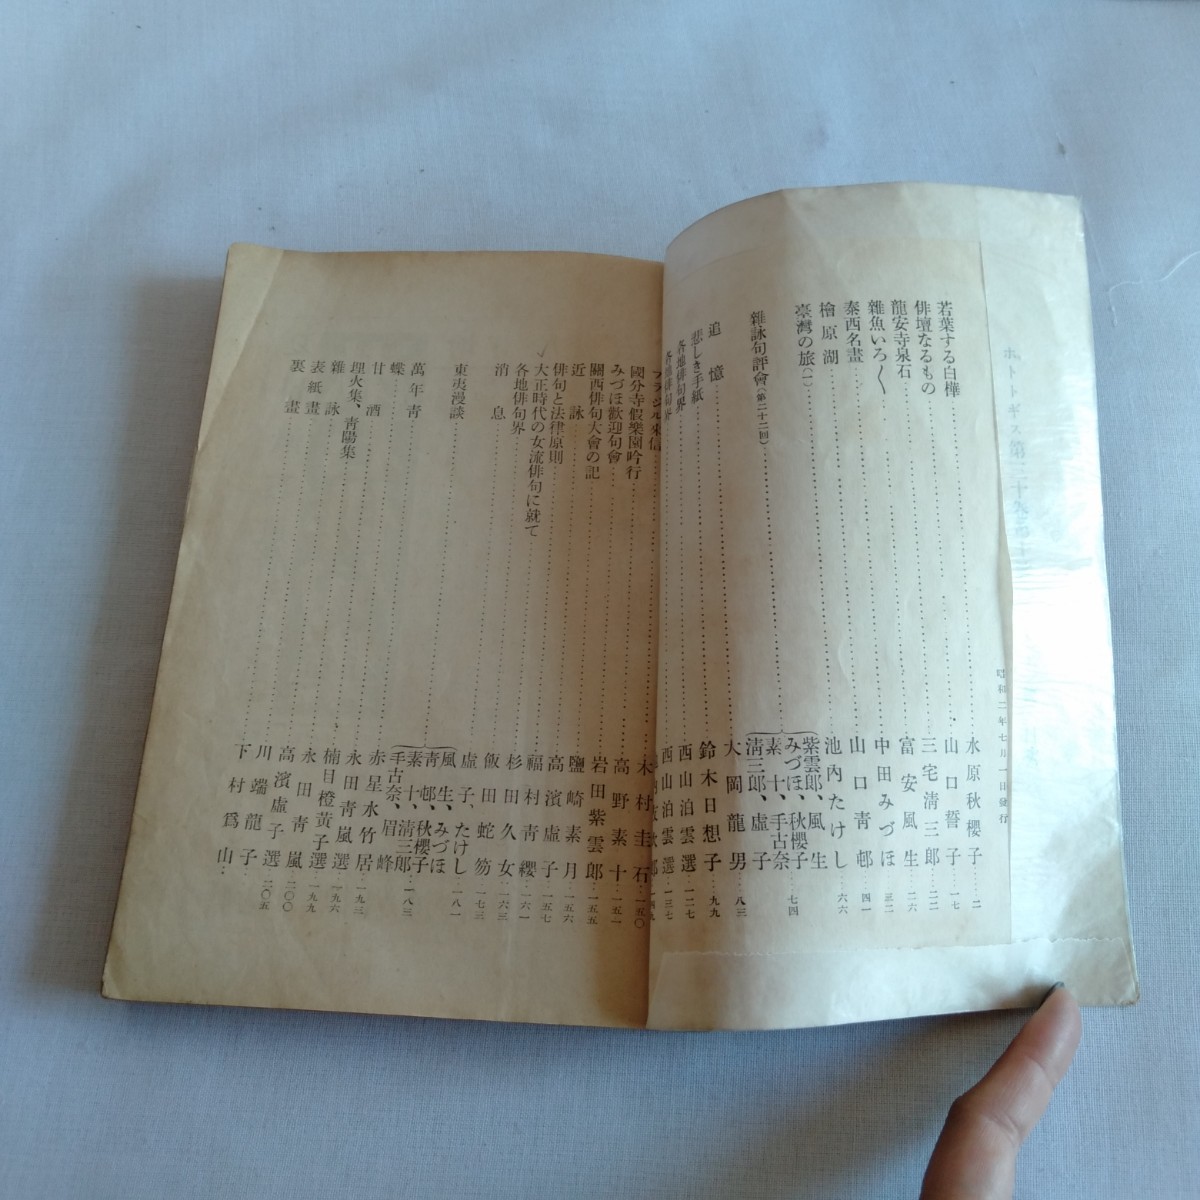 ホトトギス第三十卷第十
昭和二年七月一日發行
若葉する白樺 水原秋櫻子 二
俳壇なるもの 山口誓子 一七
龍安寺泉石 三宅淸三郎 二二
雜魚いろ〱 富安風生 二六
泰西名畫 中田みづほ 三二
檜原湖 山口靑邨 四一
臺灣の旅(一) 池內たけし 六六
雜詠句評會(第二十二回) 紫雲郞、風生 みづほ、秋櫻子 素十、手古奈 淸三郞、虛子 七四
追憶 大岡龍男 八三
悲しき手紙 鈴木日想子 九九
各地俳句界 西山泊雲選 一二七
各地俳句界 西山泊雲選 一三七
ブラジル來信 一四九
國分寺假樂園吟行 木村圭石 一五〇
みづほ歡迎句會 高野素十 一五一
關西俳句大會の記 岩田紫雲郞 一五五
近詠 鹽崎素月 一五六
俳句と法律原則 高濱虛子 一五七
大正時代の女流俳句に就て 福村靑纓 一六一
各地俳句界 杉田久女 一六三
消息 飯田蛇笏 一七三
東夷漫談 虛子、たけし 一八一
萬年靑 風生、みづほ 靑邨、秋櫻子 素十、淸三郞 手古奈、眉峰 一八三
蝶 赤星水竹居 一九三
甘酒 永田靑嵐選 一九六
埋火集、靑陽集 楠目橙黄子選 一九九
雜詠 永田靑嵐 二〇〇
表紙畫 高濱虛子選 二〇五
裏畫 川端龍子
下村爲山